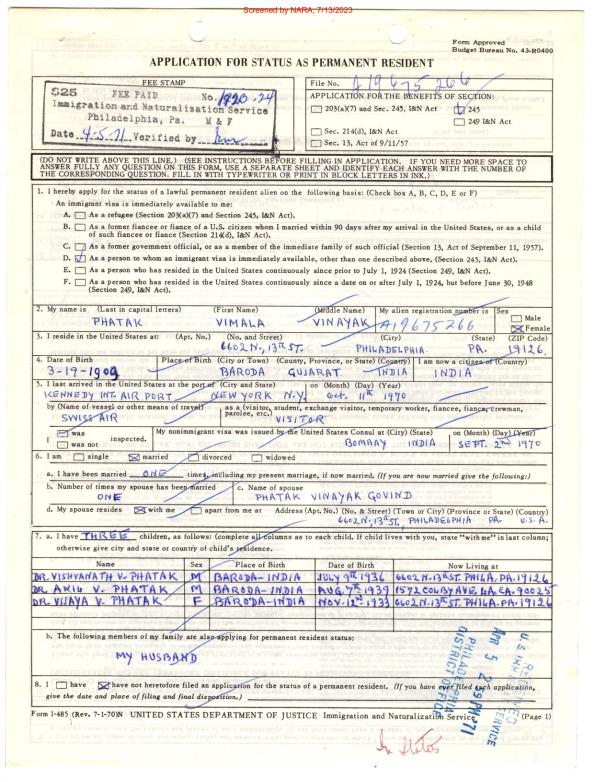 Screened by NARA, 7/13/2023
Form Approved
Budget Bureau No. 43-R0400
APPLICATION FOR STATUS AS PERMANENT RESIDENT
FEE STAMP
S25 FEE PAID No. 1920.24
Immigration and Naturalization Service
Philadelphia, Pa. M & F
Date 4-5-71 Verified by
File No. A19675266
APPLICATION FOR THE BENEFITS OF SECTION:
203(a)(7) and Sec. 245, I&N Act 245
249 I&N Act
Sec. 214(d), I&N Act
Sec. 13, Act of 9/11/57
(DO NOT WRITE ABOVE THIS LINE.) (SEE INSTRUCTIONS BEFORE FILLING IN APPLICATION. IF YOU NEED MORE SPACE TO
ANSWER FULLY ANY QUESTION ON THIS FORM, USE A SEPARATE SHEET AND IDENTIFY EACH ANSWER WITH THE NUMBER OF
THE CORRESPONDING QUESTION. FILL IN WITH TYPEWRITER OR PRINT IN BLOCK LETTERS IN INK.)
1. I hereby apply for the status of a lawful permanent resident alien on the following basis: (Check box A, B, C, D, E or F)
An immigrant visa is immediately available to me:
A. As a refugee (Section 203(a)(7) and Section 245, I&N Act).
B. As a former fiancee or fiance of a U.S. citizen whom I married within 90 days after my arrival in the United States, or as a child
of such fiancee or fiance (Section 214(d), I&N Act).
C. As a former government official, or as a member of the immediate family of such official (Section 13, Act of September 11, 1957).
D. As a person to whom an immigrant visa is immediately available, other than one described above, (Section 245, I&N Act).
E. As a person who has resided in the United States continuously since prior to July 1, 1924 (Section 249, I&N Act).
F. As a person who has resided in the United States continuously since a date on or after July 1, 1924, but before June 30, 1948
(Section 249, I&N Act).
2. My name is (Last in capital letters) (First Name) (Middle Name) My alien registration number is Sex
PHATAK VIMALA VINAYAK A19675266 Male
Female
3. I reside in the United States at: (Apt. No.) (No. and Street) (City) (State) (ZIP Code)
6602 N. 13th ST. PHILADELPHIA PA. 19126
4. Date of Birth Place of Birth (City or Town) (County, Province, or State) (Country) I am now a citizen of (Country)
3-19-1909 BARODA GUJARAT INDIA INDIA
5. I last arrived in the United States at the port of (City and State) on (Month) (Day) (Year)
KENNEDY INT. AIR PORT NEW YORK N.Y. Oct. 11th 1970
by (Name of vessel or other means of travel) as a (visitor, student, exchange visitor, temporary worker, fiancee, fiance, crewman,
parolee, etc.)
SWISS AIR VISITOR
I was My nonimmigrant visa was issued by the United States Consul at (City) (State) on (Month) (Day) (Year)
was not inspected. BOMBAY INDIA SEPT. 2nd 1970
6. I am single married divorced widowed
a. I have been married ONE times, including my present marriage, if now married. (If you are now married give the following:)
b. Number of times my spouse has been married c. Name of spouse
ONE PHATAK VINAYAK GOVIND
d. My spouse resides with me apart from me at Address (Apt. No.) (No. & Street) (Town or City) (Province or State) (Country)
6602 N. 13th ST. PHILADELPHIA PA. U.S.A.
7. a. I have THREE children, as follows: (complete all columns as to each child. If child lives with you, state "with me" in last column;
otherwise give city and state or country of child's residence.
Name Sex Place of Birth Date of Birth Now Living at
DR. VISHVANATH V. PHATAK M BARODA-INDIA JULY 9th 1936 6602 N. 13th ST. PHILA. PA. 19126
DR. ANIL V. PHATAK M BARODA-INDIA AUG. 7th 1939 1572 COLBY AVE. LA. CA. 90025
DR. VIJAYA V. PHATAK F BARODA-INDIA NOV. 12th 1933 6602 N. 13th ST. PHILA. PA. 19126
b. The following members of my family are also applying for permanent resident status:
MY HUSBAND
8. I have have not heretofore filed an application for the status of a permanent resident. (If you have ever filed such application,
give the date and place of filing and final disposition.)
RECEIVED
U.S. IMM. & NAT. SERVICE
APR 5 2 59 PM '71
PHILADELPHIA
DISTRICT OFFICE
Form I-485 (Rev. 7-1-70)N UNITED STATES DEPARTMENT OF JUSTICE Immigration and Naturalization Service (Page 1)
In Status